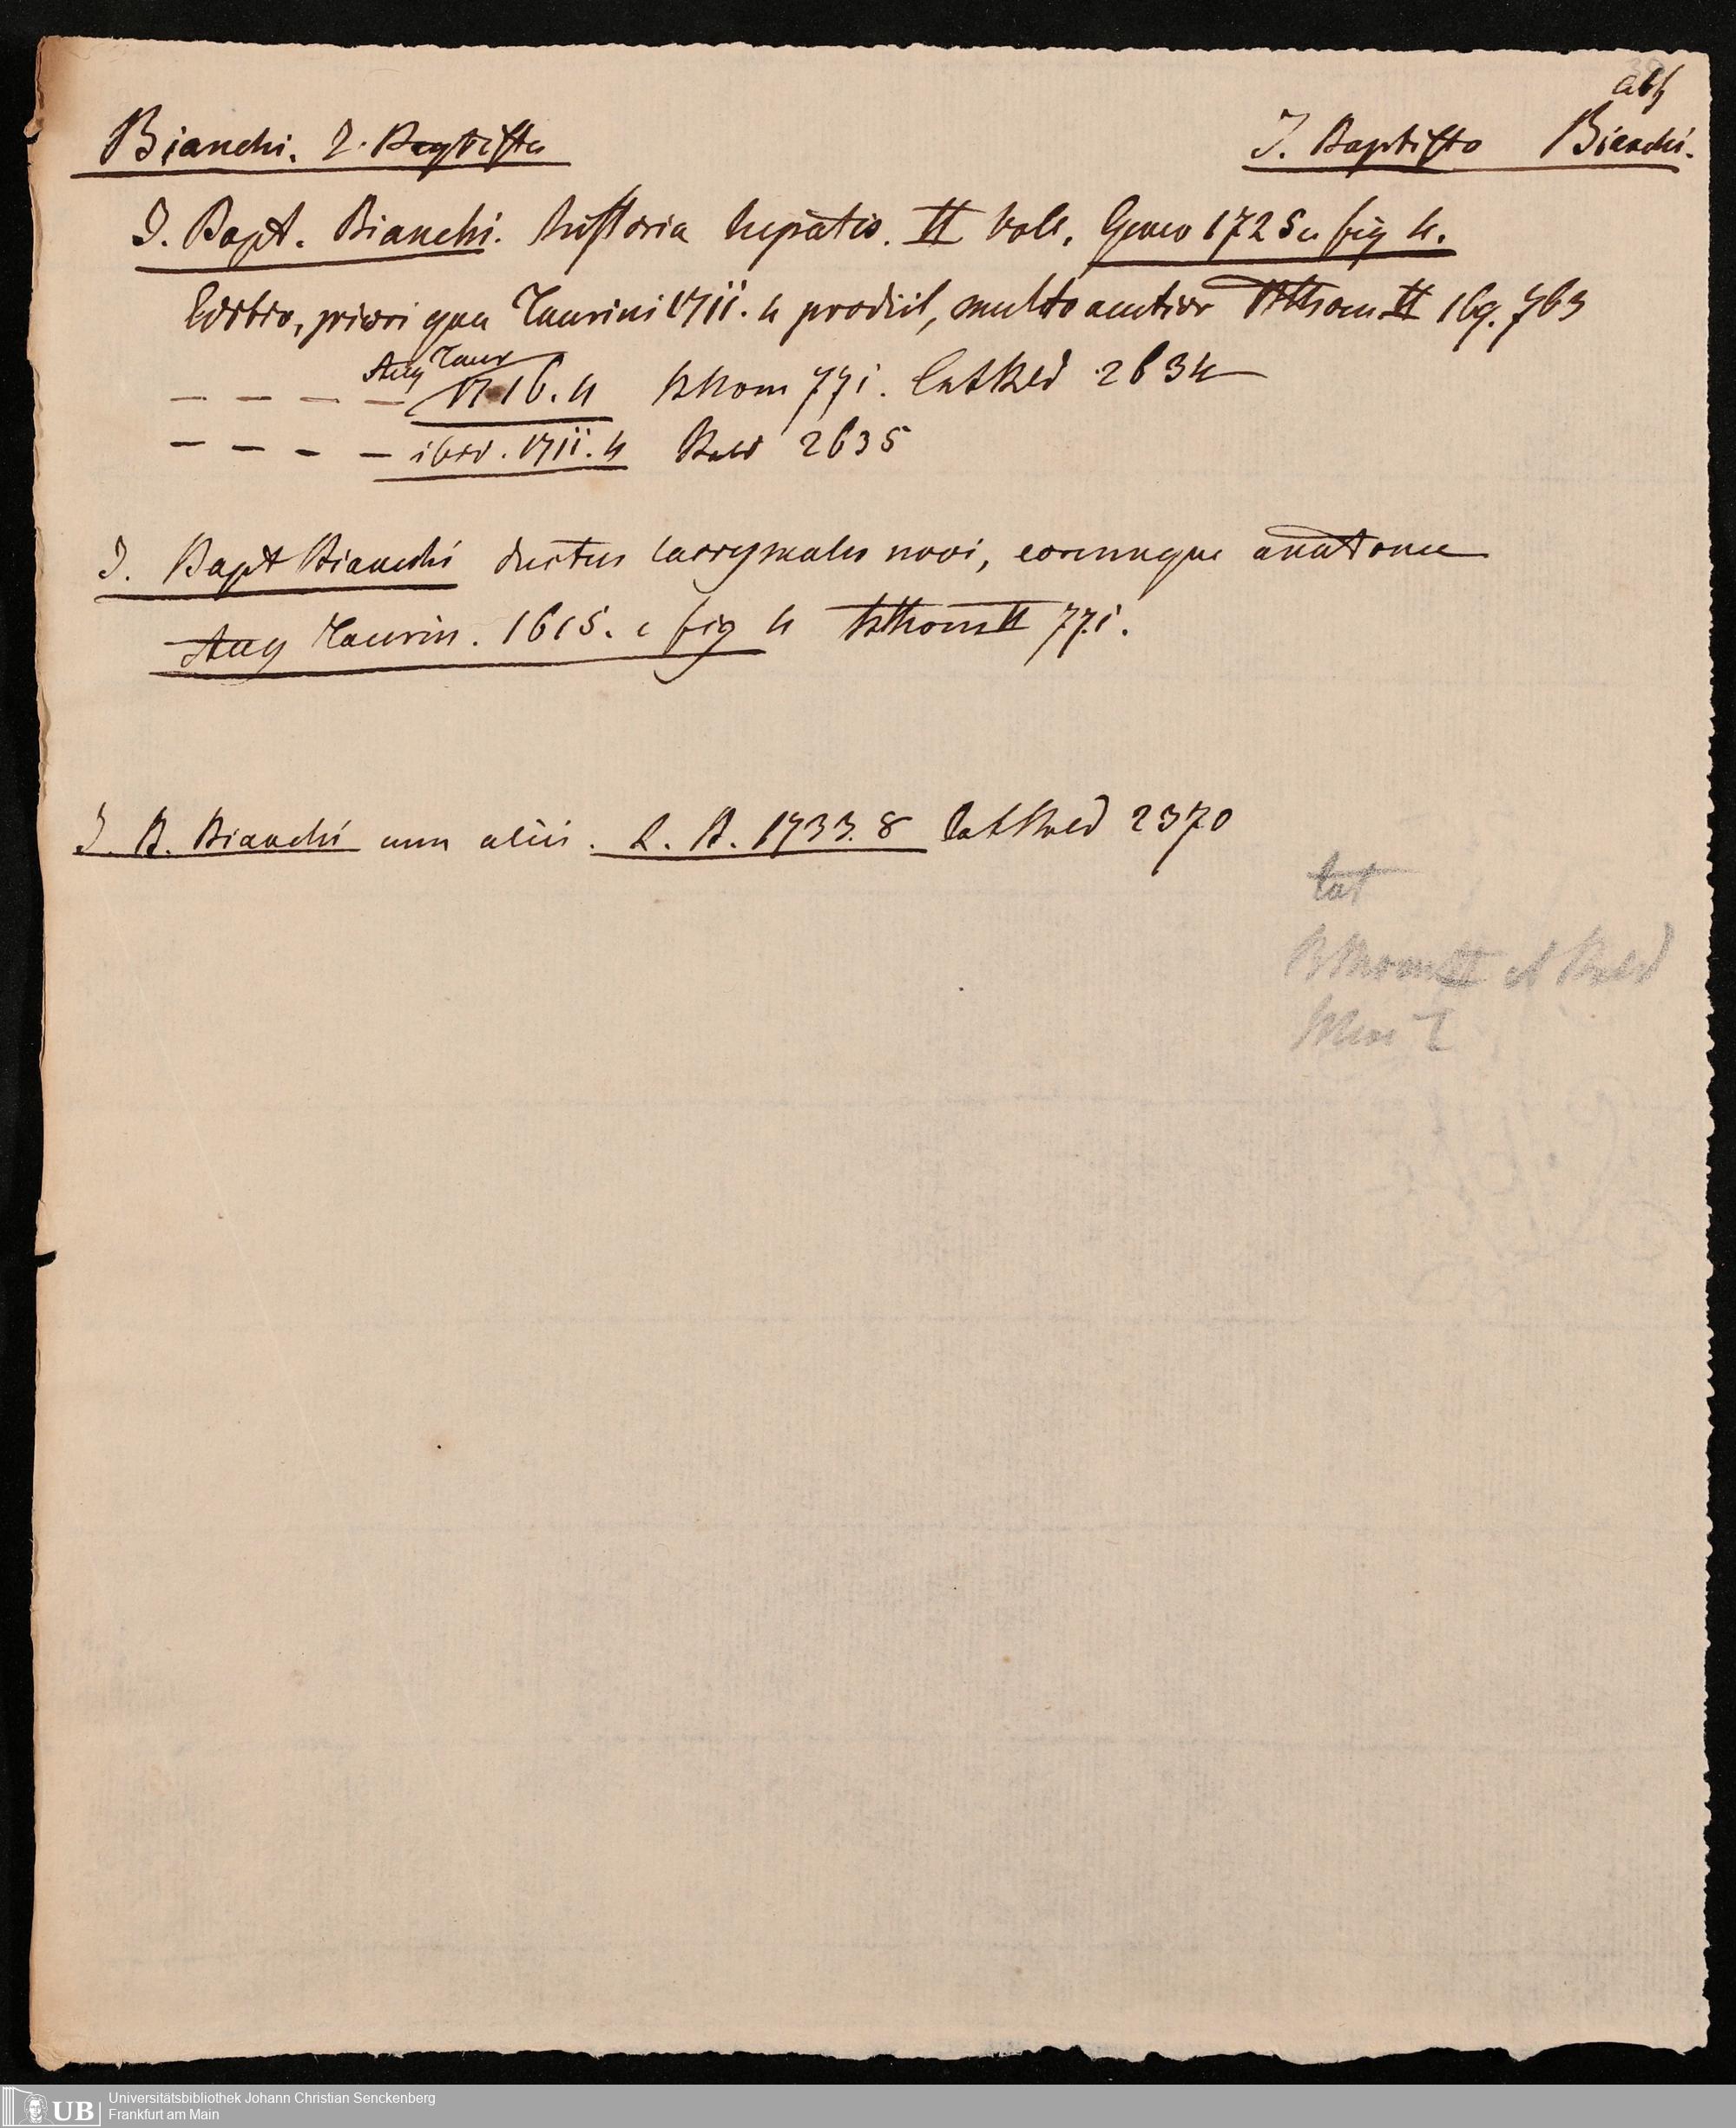 abs
Bianchi. J. Baptista
J. Baptista Bianchi.
J. Bapt. Bianchi. historia hepatis. II voll. Genev 1725 c fig 4.
Editio, priori quae Taurini 1711. 4 prodiit, multo auctior BThom II 169. 763
Aug Taur
— — — — 1716. 4 BThom 771. Cat Bald 2634
— — — — ibid. 1711. 4 Bald 2635
J. Bapt Bianchi ductus lacrymales novi, eorumque anatome
Aug Taurin. 1615. c fig 4 BThom II 771.
J. B. Bianchi cum aliis. L. B. 1733. 8 Cat Bald 2370
Cat
BThom II et Bald
UB
Universitätsbibliothek Johann Christian Senckenberg
Frankfurt am Main